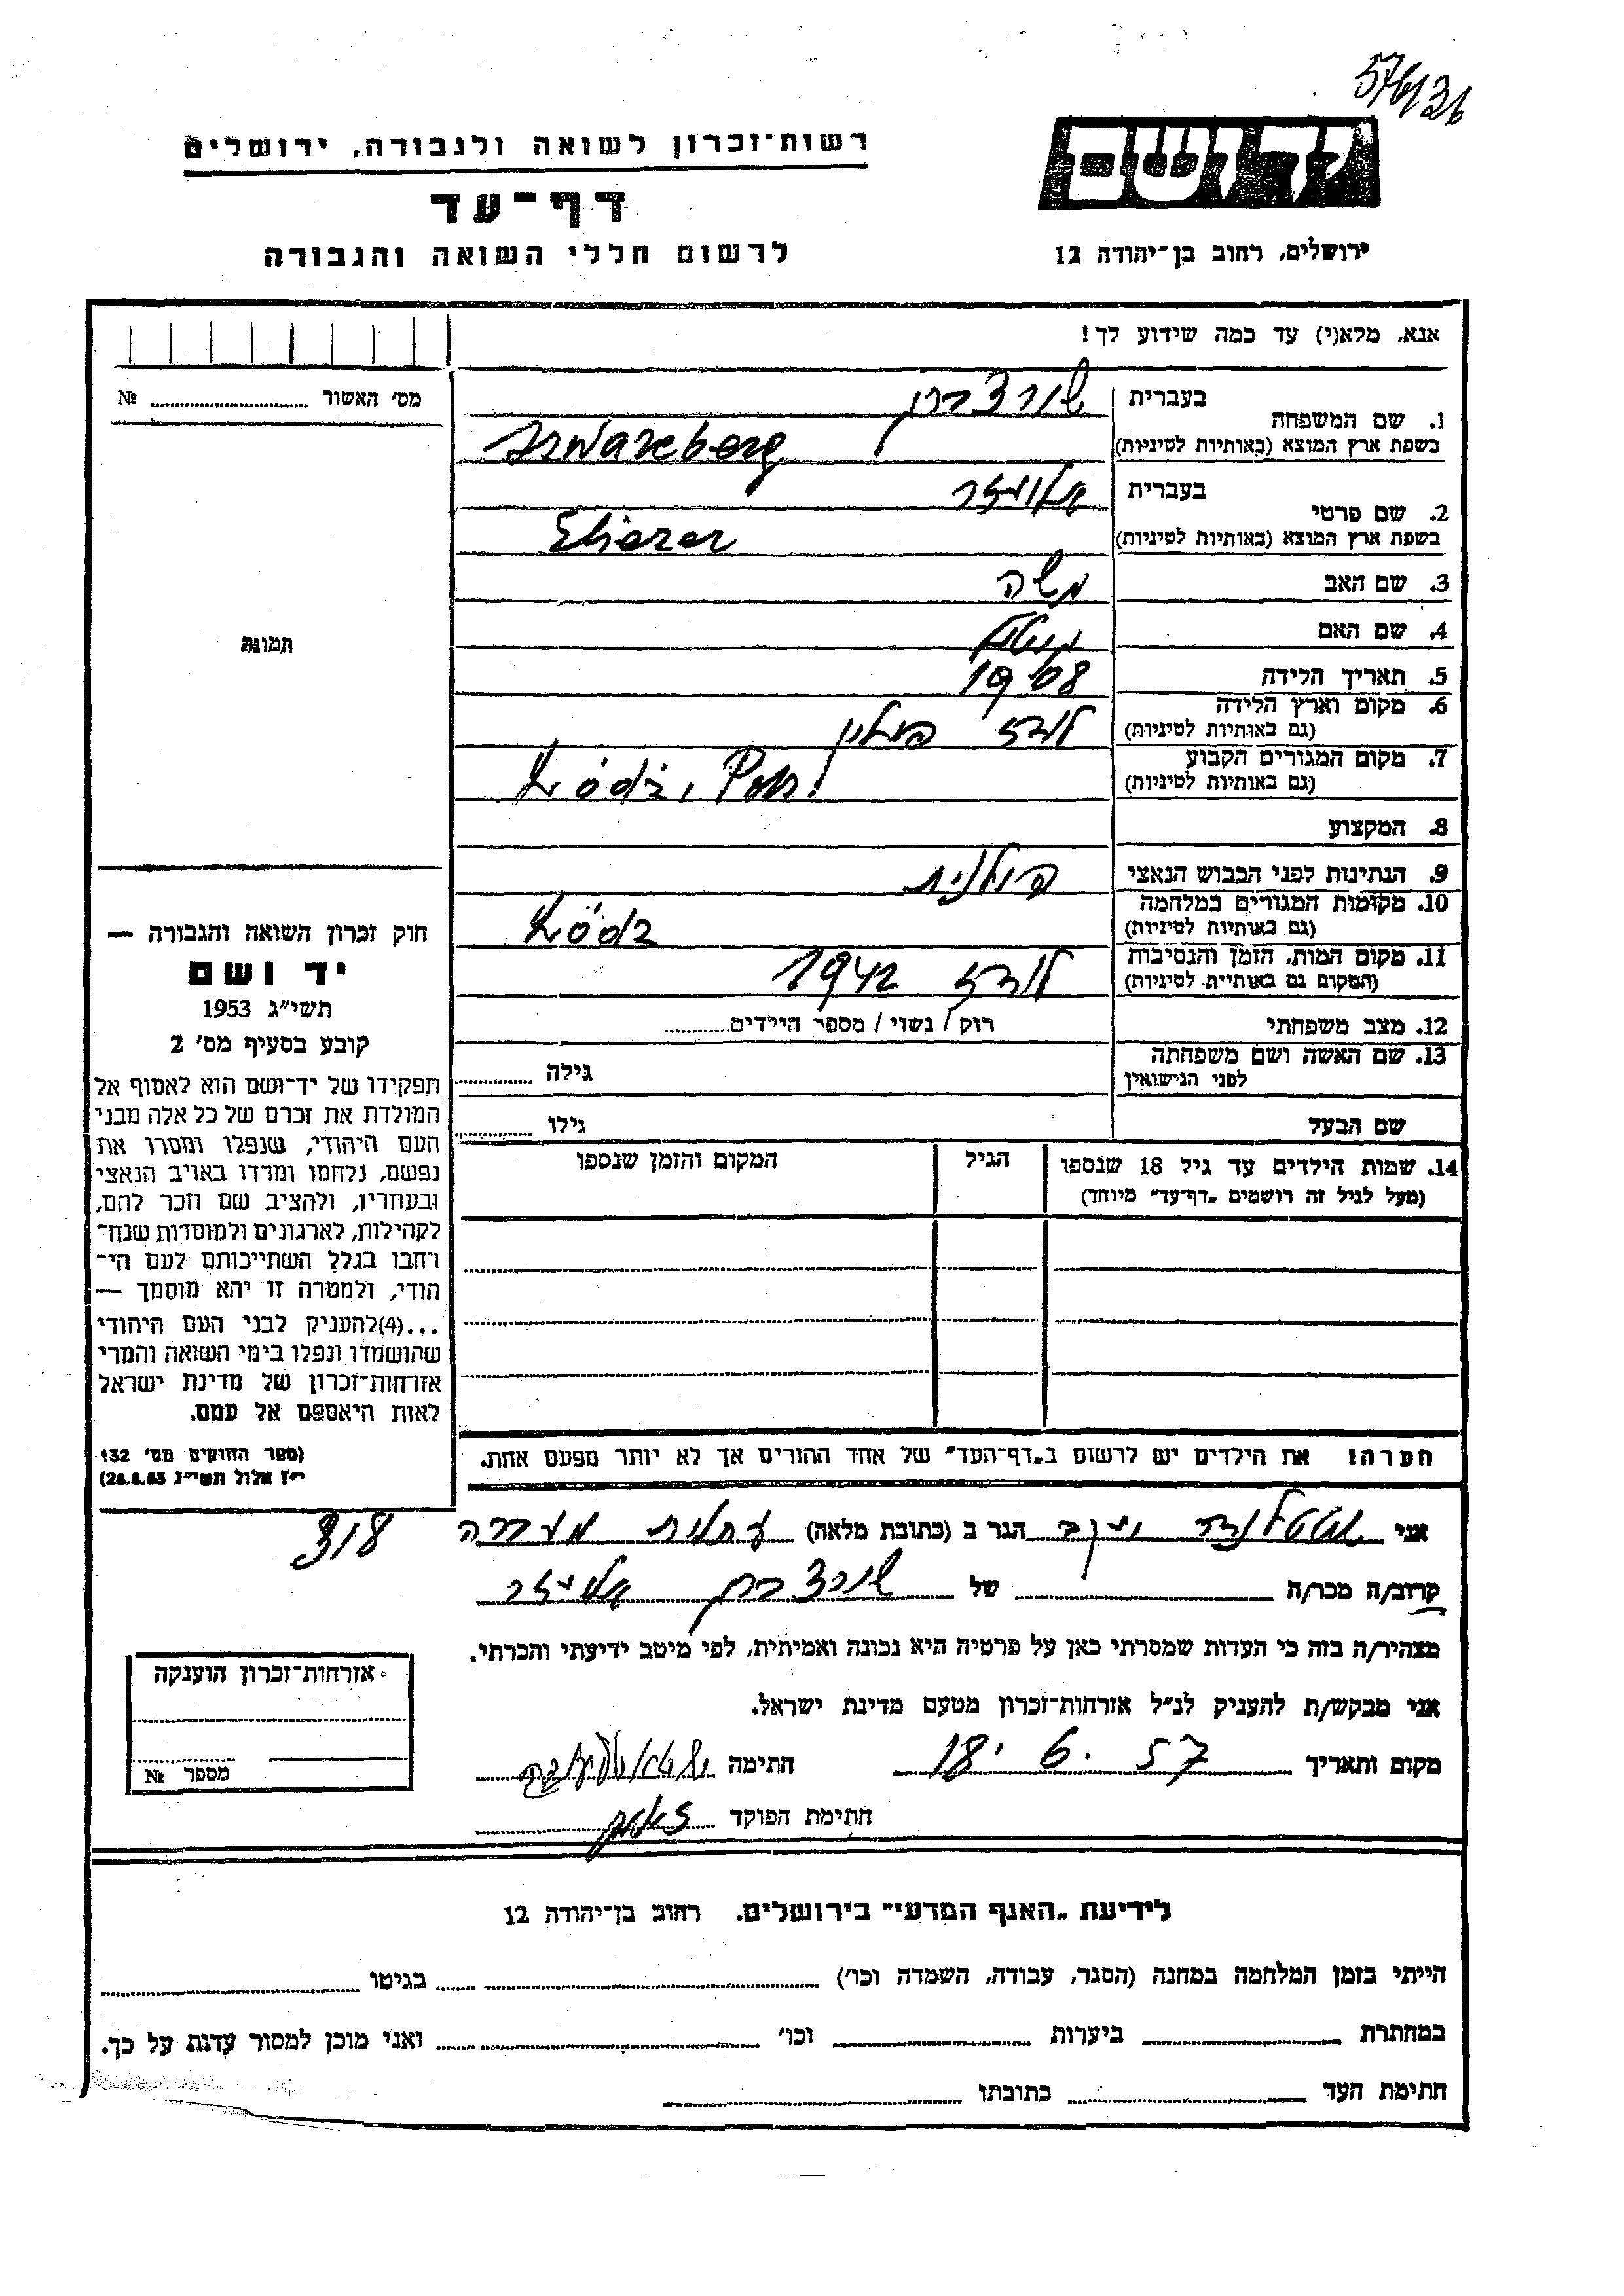 57/6136
רשות־זכרון לשואה ולגבורה, ירושלים
יד ושם
דף־עד
ירושלים, רחוב בן־יהודה 12
לרשום חללי השואה והגבורה
אנא, מלא(י) עד כמה שידוע לך!
מס' האשור № ..........
1. שם המשפחה
בעברית שורצברג
בשפת ארץ המוצא (באותיות לטיניות) Szwarcberg
2. שם פרטי
בעברית אליעזר
בשפת ארץ המוצא (באותיות לטיניות) Eliezer
3. שם האב משה
4. שם האם
5. תאריך הלידה 1908
6. מקום וארץ הלידה
(גם באותיות לטיניות) לודז פולין
7. מקום המגורים הקבוע
(גם באותיות לטיניות) Łódź, Pol.
8. המקצוע
9. הנתינות לפני הכבוש הנאצי פולנית
10. מקומות המגורים במלחמה
(גם באותיות לטיניות) Łódź
11. מקום המות, הזמן והנסיבות
(המקום גם באותיות לטיניות) לודז 1942
12. מצב משפחתי רוק / נשוי / מספר הילדים ..........
13. שם האשה ושם משפחתה
לפני הנישואין גילה ..........
שם הבעל גילו ..........
14. שמות הילדים עד גיל 18 שנספו הגיל המקום והזמן שנספו
(מעל לגיל זה רושמים „דף־עד" מיוחד)
תמונה
חוק זכרון השואה והגבורה —
יד ושם
תשי"ג 1953
קובע בסעיף מס' 2
תפקידו של יד־ושם הוא לאסוף אל
המולדת את זכרם של כל אלה מבני
העם היהודי, שנפלו ומסרו את
נפשם, נלחמו ומרדו באויב הנאצי
ובעוזריו, ולהציב שם וזכר להם,
לקהילות, לארגונים ולמוסדות שנח־
רחבו בגלל השתייכותם לעם הי־
הודי, ולמטרה זו יהא מוסמך —
...(4)להעניק לבני העם היהודי
שהושמדו ונפלו בימי השואה והמרי
אזרחות־זכרון של מדינת ישראל
לאות היאספם אל עמם.
(ספר החוקים מס' 132
י"ז אלול תשי"ג 28.8.53)
הערה! את הילדים יש לרשום ב„דף־העד" של אחד ההורים אך לא יותר מפעם אחת.
אני הגר ב (כתובת מלאה) עתלית מעברה 318
קרוב/ה מכר/ה של שורצברג אליעזר
מצהיר/ה בזה כי העדות שמסרתי כאן על פרטיה היא נכונה ואמיתית, לפי מיטב ידיעתי והכרתי.
אני מבקש/ת להעניק לנ"ל אזרחות־זכרון מטעם מדינת ישראל.
מקום ותאריך 18. 6. 57 חתימה
חתימת הפוקד
אזרחות־זכרון הוענקה
מספר №
לידיעת „האגף המדעי" בירושלים, רחוב בן־יהודה 12
הייתי בזמן המלחמה במחנה (הסגר, עבודה, השמדה וכו') .......... בגיטו ..........
במחתרת .......... ביערות .......... וכו' .......... ואני מוכן למסור עדות על כך.
חתימת העד .......... כתובתו ..........